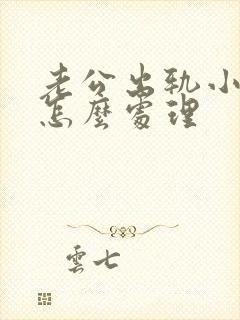 老公出轨小
怎麼處理
雲七